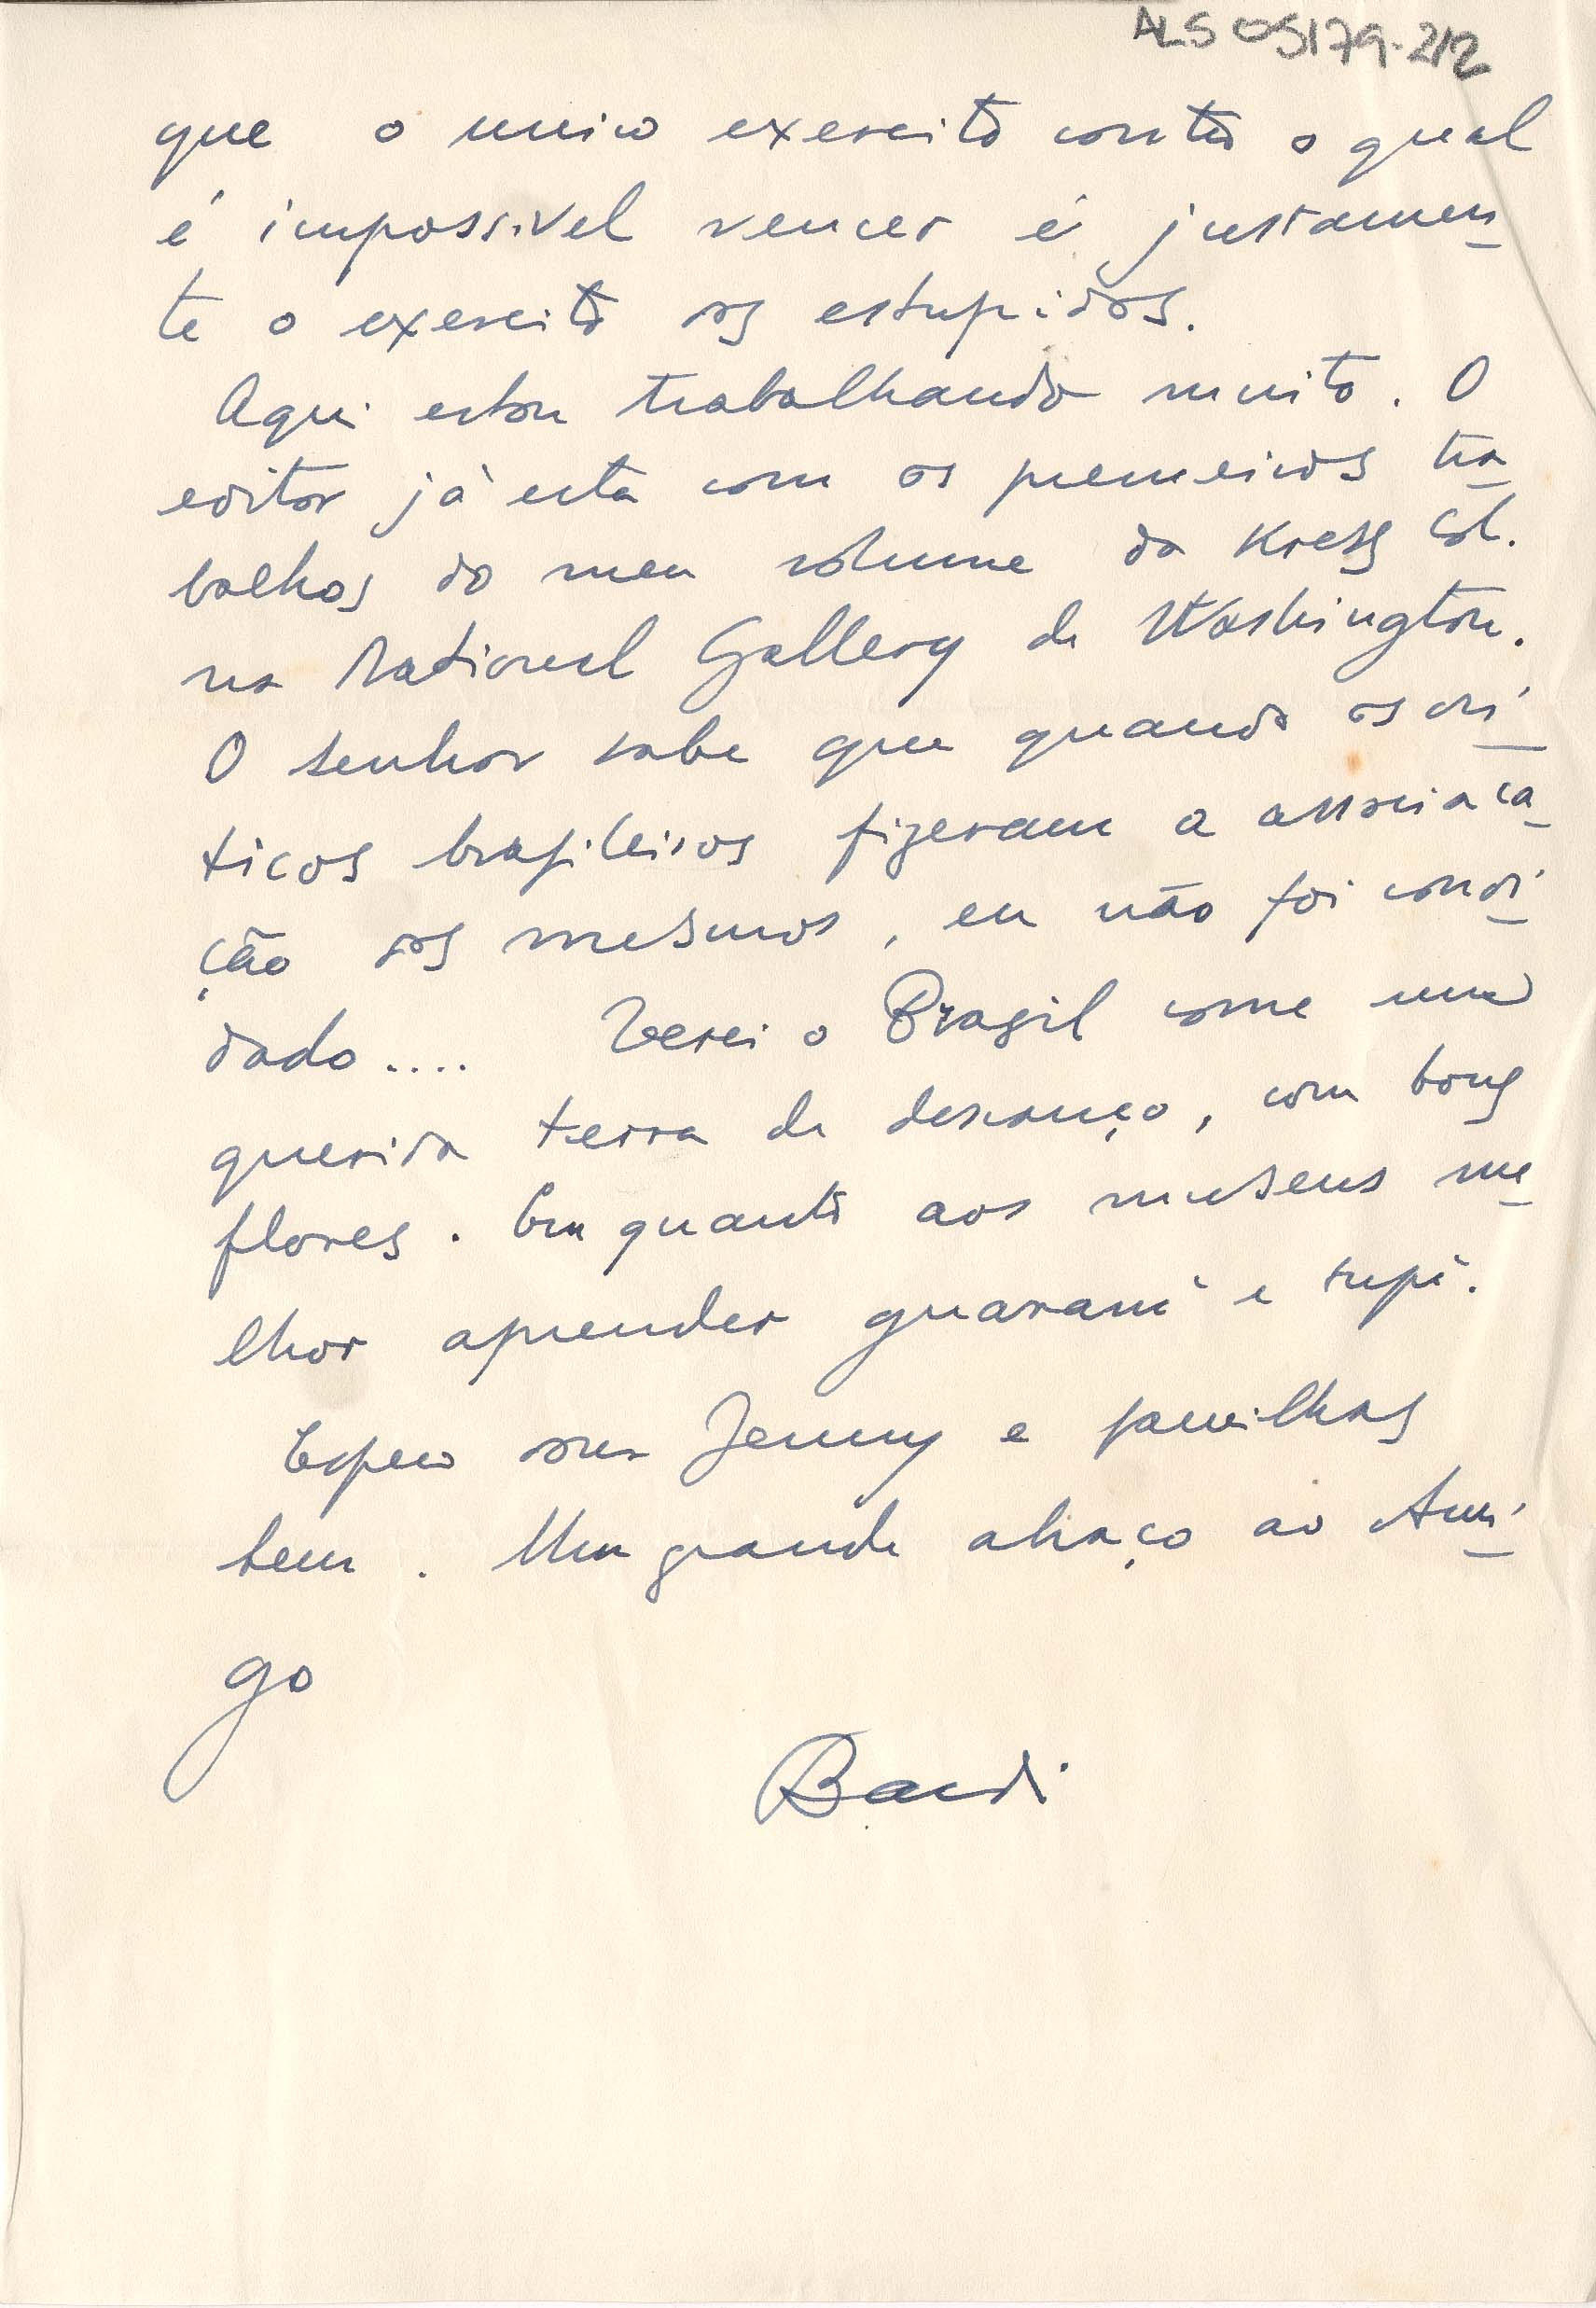 ALS 05179-2/2
que o unico exercito contra o qual
é impossivel vencer é justamen
te o exercito dos estupidos.
Aqui estou trabalhando muito. O
editor já esta com os premeiros tra
balhos do meu volume da Kress Col.
na National Gallery de Washington.
O senhor sabe que quando os crí
ticos brasileiros fizeram a associaca
ção dos mesmos, eu não foi convi
dado.... Verei o Brasil come uma
querida terra de descanço, com boas
flores. Em quanto aos museus me
lhor aprender guaraní e tupí.
Espero dona Jenny e familhas
bem. Um grande abraço ao Ami
go
Bardi